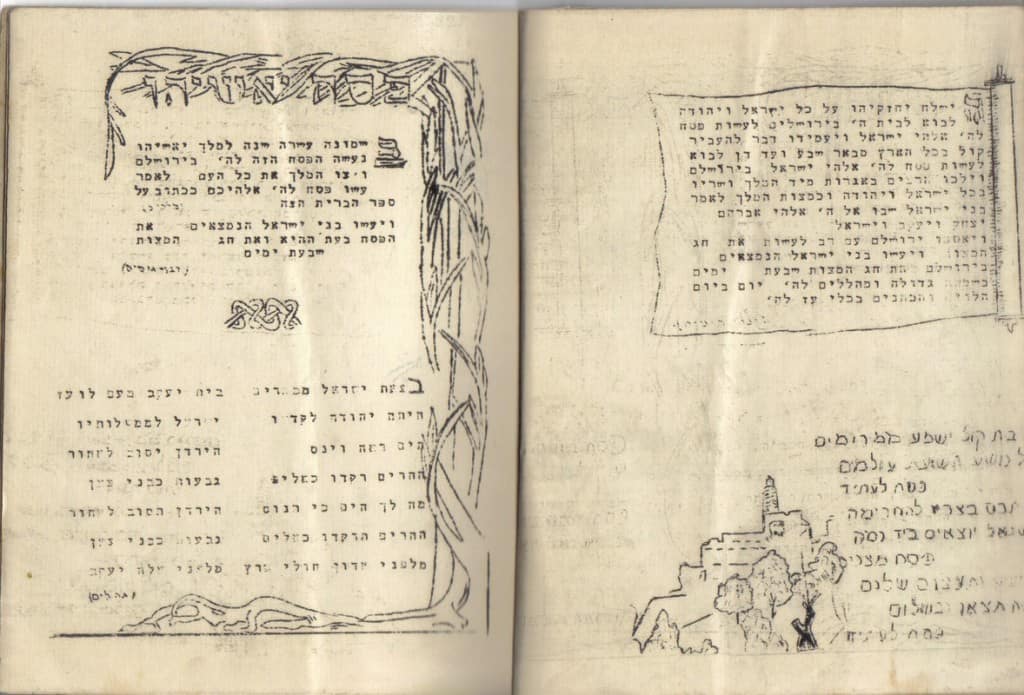 וישלח יחזקיהו על כל ישראל ויהודה
לבוא לבית ה' בירושלים לעשות פסח
לה' אלהי ישראל ויעמידו דבר להעביר
קול בכל הארץ מבאר שבע ועד דן לבוא
לעשות פסח לה' אלהי ישראל בירושלים
וילכו הרצים באגרות מיד המלך ושריו
בכל ישראל ויהודה וכמצות המלך לאמר
בני ישראל שבו אל ה' אלהי אברהם
יצחק וישראל
ויאספו ירושלם עם רב לעשות את חג
המצות ויעשו בני ישראל הנמצאים
בירושלם את חג המצות שבעת ימים
בשמחה גדולה ומהללים לה' יום ביום
הלוים והכהנים בכלי עז לה'
בת קול ישמע ממרומים
תשועת עולמים
פסח לעתיד
בצרה להחרימה
יוצאים ביד
פיסח מצרים
שלים
בשלום
פסח לעתיד
פסח יאשיהו
בשמונה עשרה שנה למלך יאשיהו
נעשה הפסח הזה לה' בירושלם
ויצו המלך את כל העם לאמר
עשו פסח לה' אלהיכם ככתוב על
ספר הברית הזה (מלכים)
ויעשו בני ישראל הנמצאים את
הפסח בעת ההיא ואת חג המצות
שבעת ימים
(דברי הימים)
בצאת ישראל ממצרים בית יעקב מעם לועז
היתה יהודה לקדשו ישראל ממשלותיו
הים ראה וינס הירדן יסוב לאחור
ההרים רקדו כאלים גבעות כבני צאן
מה לך הים כי תנוס הירדן תסוב לאחור
ההרים תרקדו כאלים גבעות כבני צאן
מלפני אדון חולי ארץ מלפני אלה יעקב
(תהלים)